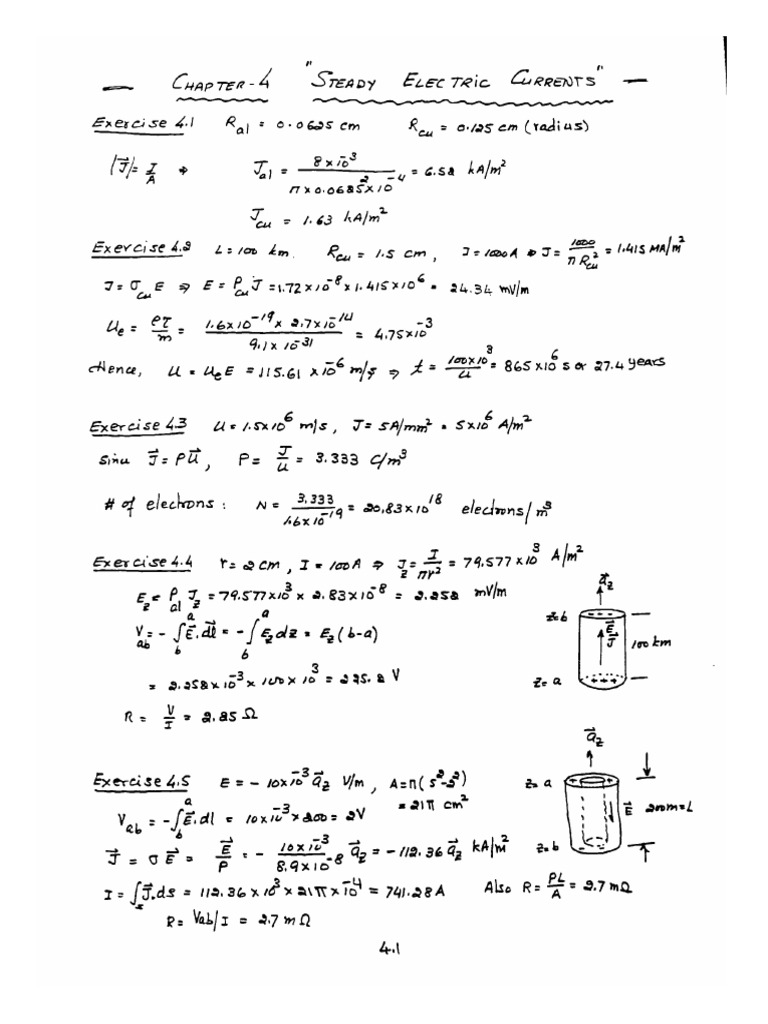 — CHAPTER-4 "STEADY ELECTRIC CURRENTS" —
Exercise 4.1 R_al = 0.0625 cm R_cu = 0.125 cm (radius)
|J⃗| = I/A ⇒ J_al = 8×10^-3 / (π × 0.0625^2 × 10^-4) = 6.52 kA/m^2
J_cu = 1.63 kA/m^2
Exercise 4.2 L = 100 km. R_cu = 1.5 cm, I = 1000A ⇒ J = 1000/(π R_cu^2) = 1.415 MA/m^2
J = σ_cu E ⇒ E = ρ_cu J = 1.72×10^-8 × 1.415×10^6 = 24.34 mV/m
u_e = eτ/m = (1.6×10^-19 × 2.7×10^-14) / (9.1×10^-31) = 4.75×10^-3
Hence, u = u_e E = 115.61 × 10^-6 m/s ⇒ t = 100×10^3/u = 865×10^6 s or 27.4 years
Exercise 4.3 u = 1.5×10^6 m/s, J = 5A/mm^2 = 5×10^6 A/m^2
Since J⃗ = ρU⃗, ρ = J/u = 3.333 C/m^3
# of electrons: N = 3.333/(1.6×10^-19) = 20.83×10^18 electrons/m^3
Exercise 4.4 r = 2 cm, I = 100A ⇒ J_z = I/(πr^2) = 79.577×10^3 A/m^2
E_z = ρ_al J_z = 79.577×10^3 × 2.83×10^-8 = 2.252 mV/m
a⃗_z
V_ab = -∫_b^a E⃗.dl⃗ = -∫_b^a E_z dz = E_z(b-a)
z=b
E⃗
J⃗
100 km
= 2.258×10^-3 × 100×10^3 = 225.2 V
z=a
R = V/I = 2.25 Ω
a⃗_z
Exercise 4.5 E = -10×10^-3 a⃗_z V/m, A = π(5^2-2^2)
= 21π cm^2
z=a
V_ab = -∫_b^a E⃗.dl = 10×10^-3 × 200 = 2V
E⃗
200m=L
J⃗ = σE⃗ = E⃗/ρ = - (10×10^-3)/(8.9×10^-8) a⃗_z = -112.36 a⃗_z kA/m^2
z=b
I = ∫_s J⃗.ds = 112.36×10^3 × 21π×10^-4 = 741.28 A Also R = ρL/A = 2.7 mΩ
R = Vab/I = 2.7 mΩ
4.1